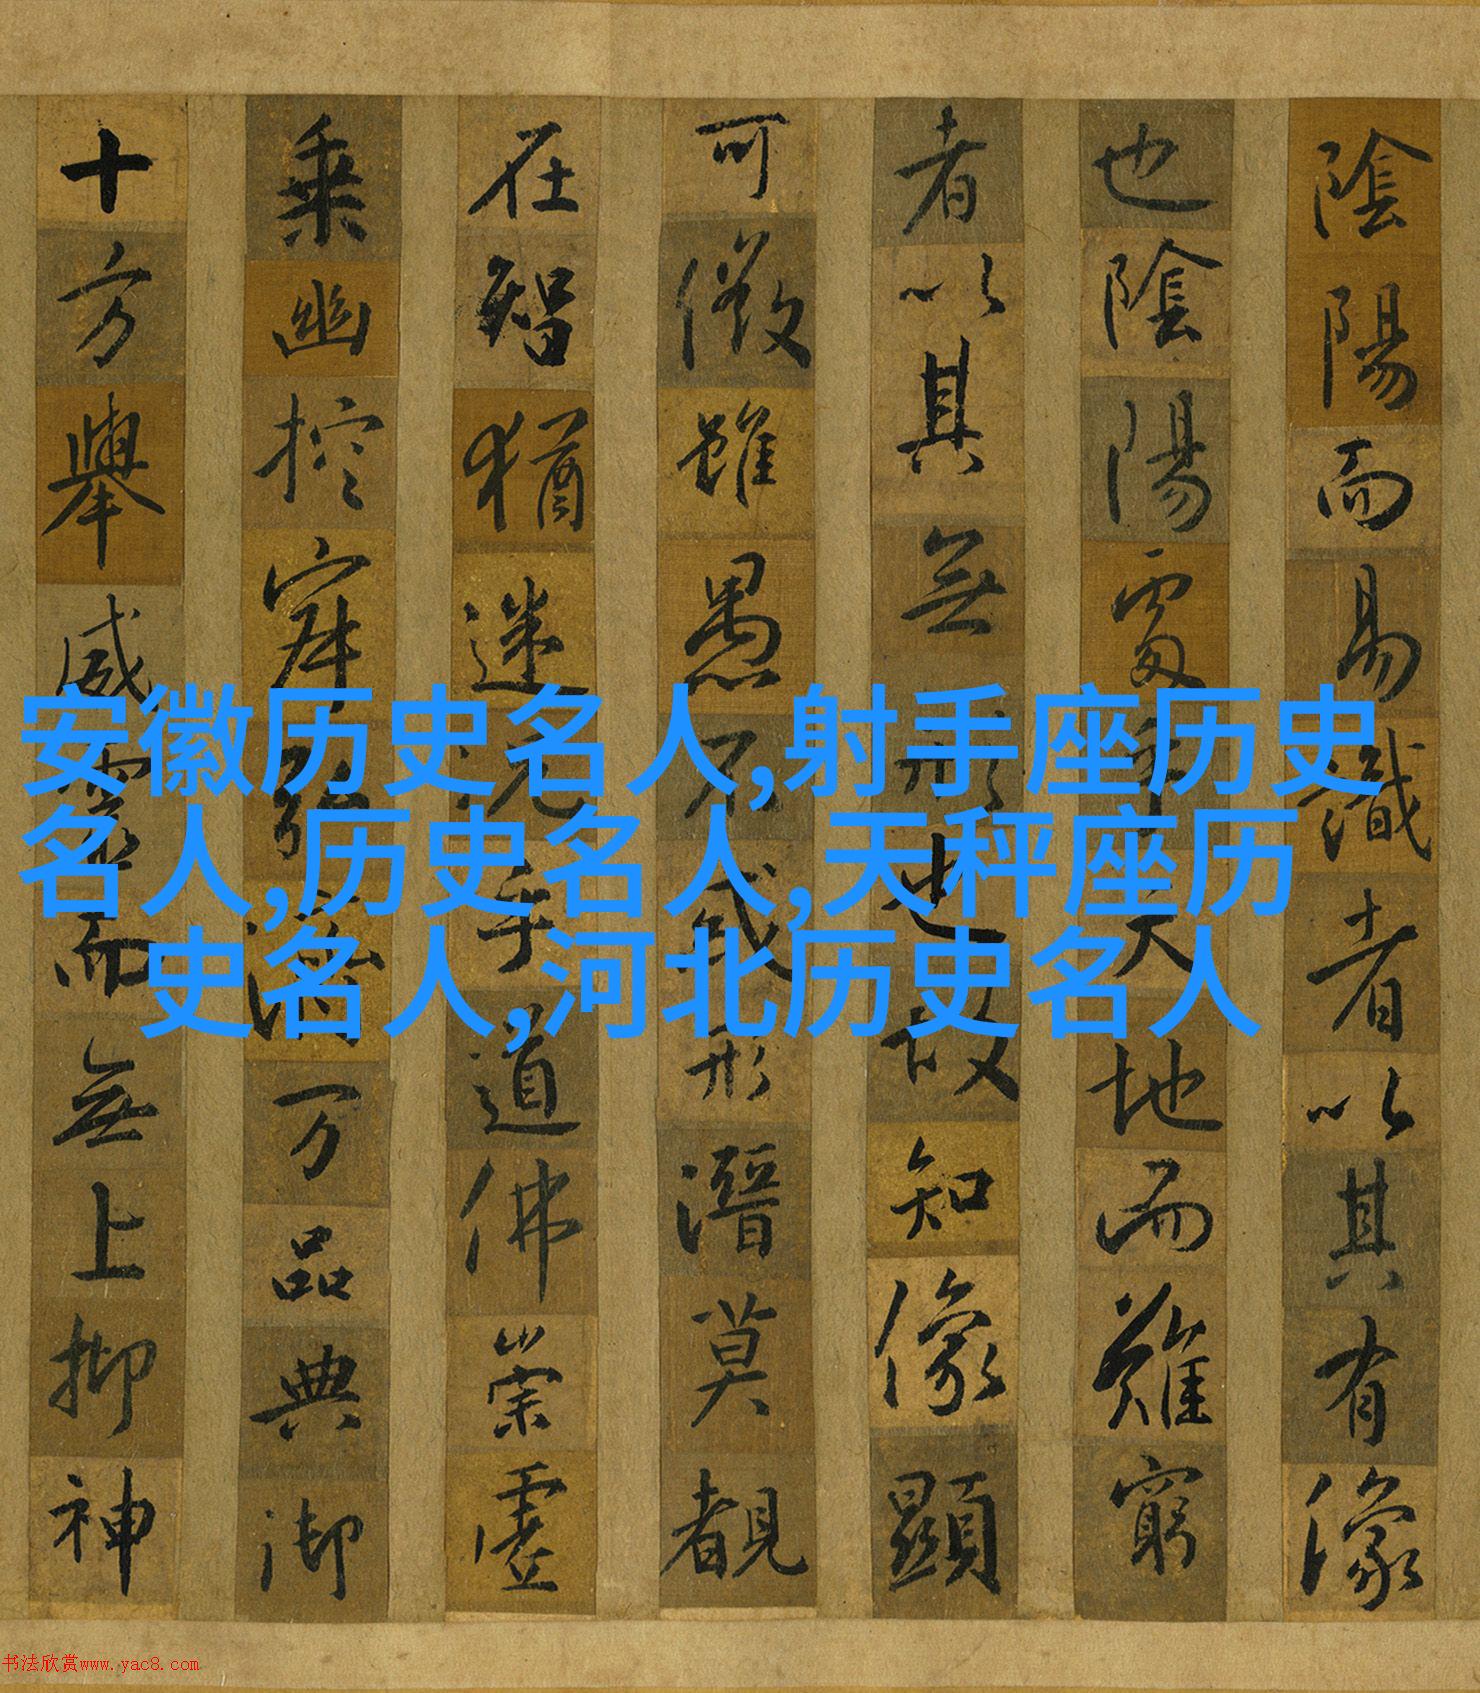 陰陽而易識者以其有像
也陰陽處乎天地而難窮
者以其無形也故知像顯
可徵雖愚不惑形潛莫覩
在智猶迷况乎道佛崇虛
乗幽控寂弘濟万品典御
十方舉威靈而無上抑神
安徽历史名人,射手座历史
名人,历史名人,天秤座历
史名人,河北历史名人
书法欣赏www.yac8.com